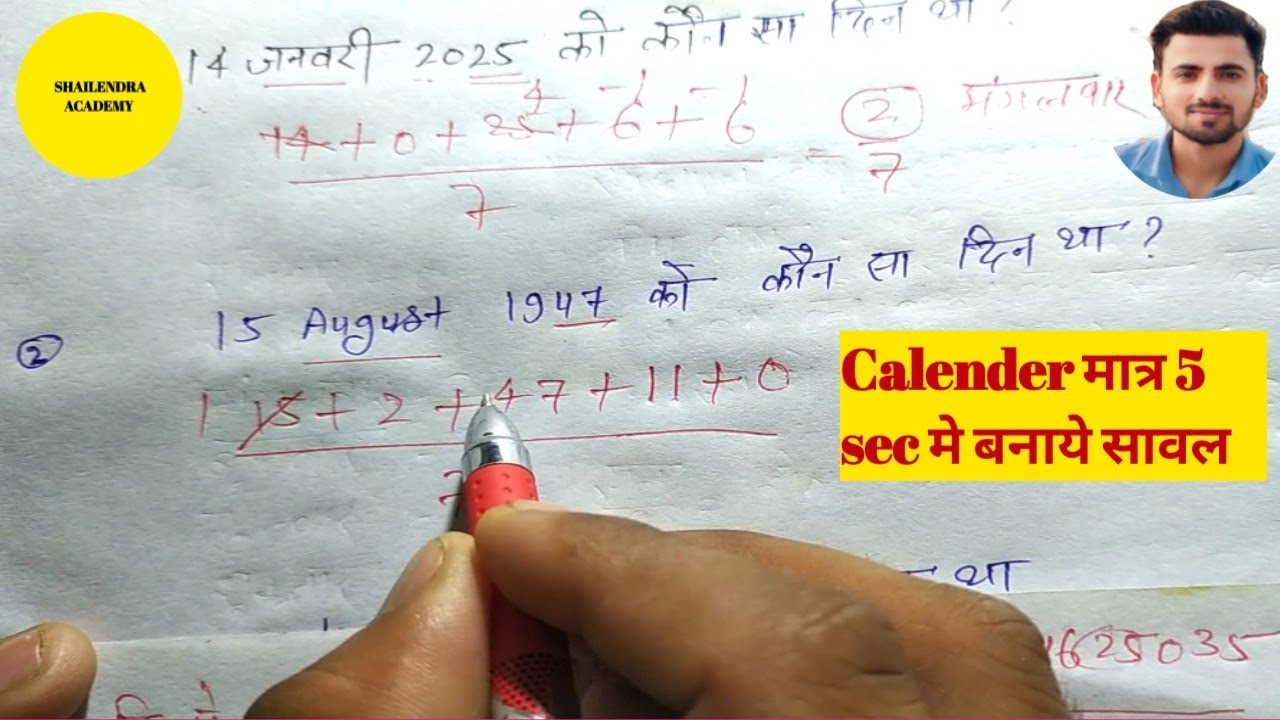 SHAILENDRA
ACADEMY
14 जनवरी 2025 को कौन सा दिन था ?
4 -1 -1
14 + 0 + 25 + 6 + 6
7
= 2
7
मंगलवार
② 15 August 1947 को कौन सा दिन था ?
1 15 + 2 + 47 + 11 + 0
Calender मात्र 5
sec मे बनाये सावल
था
625035